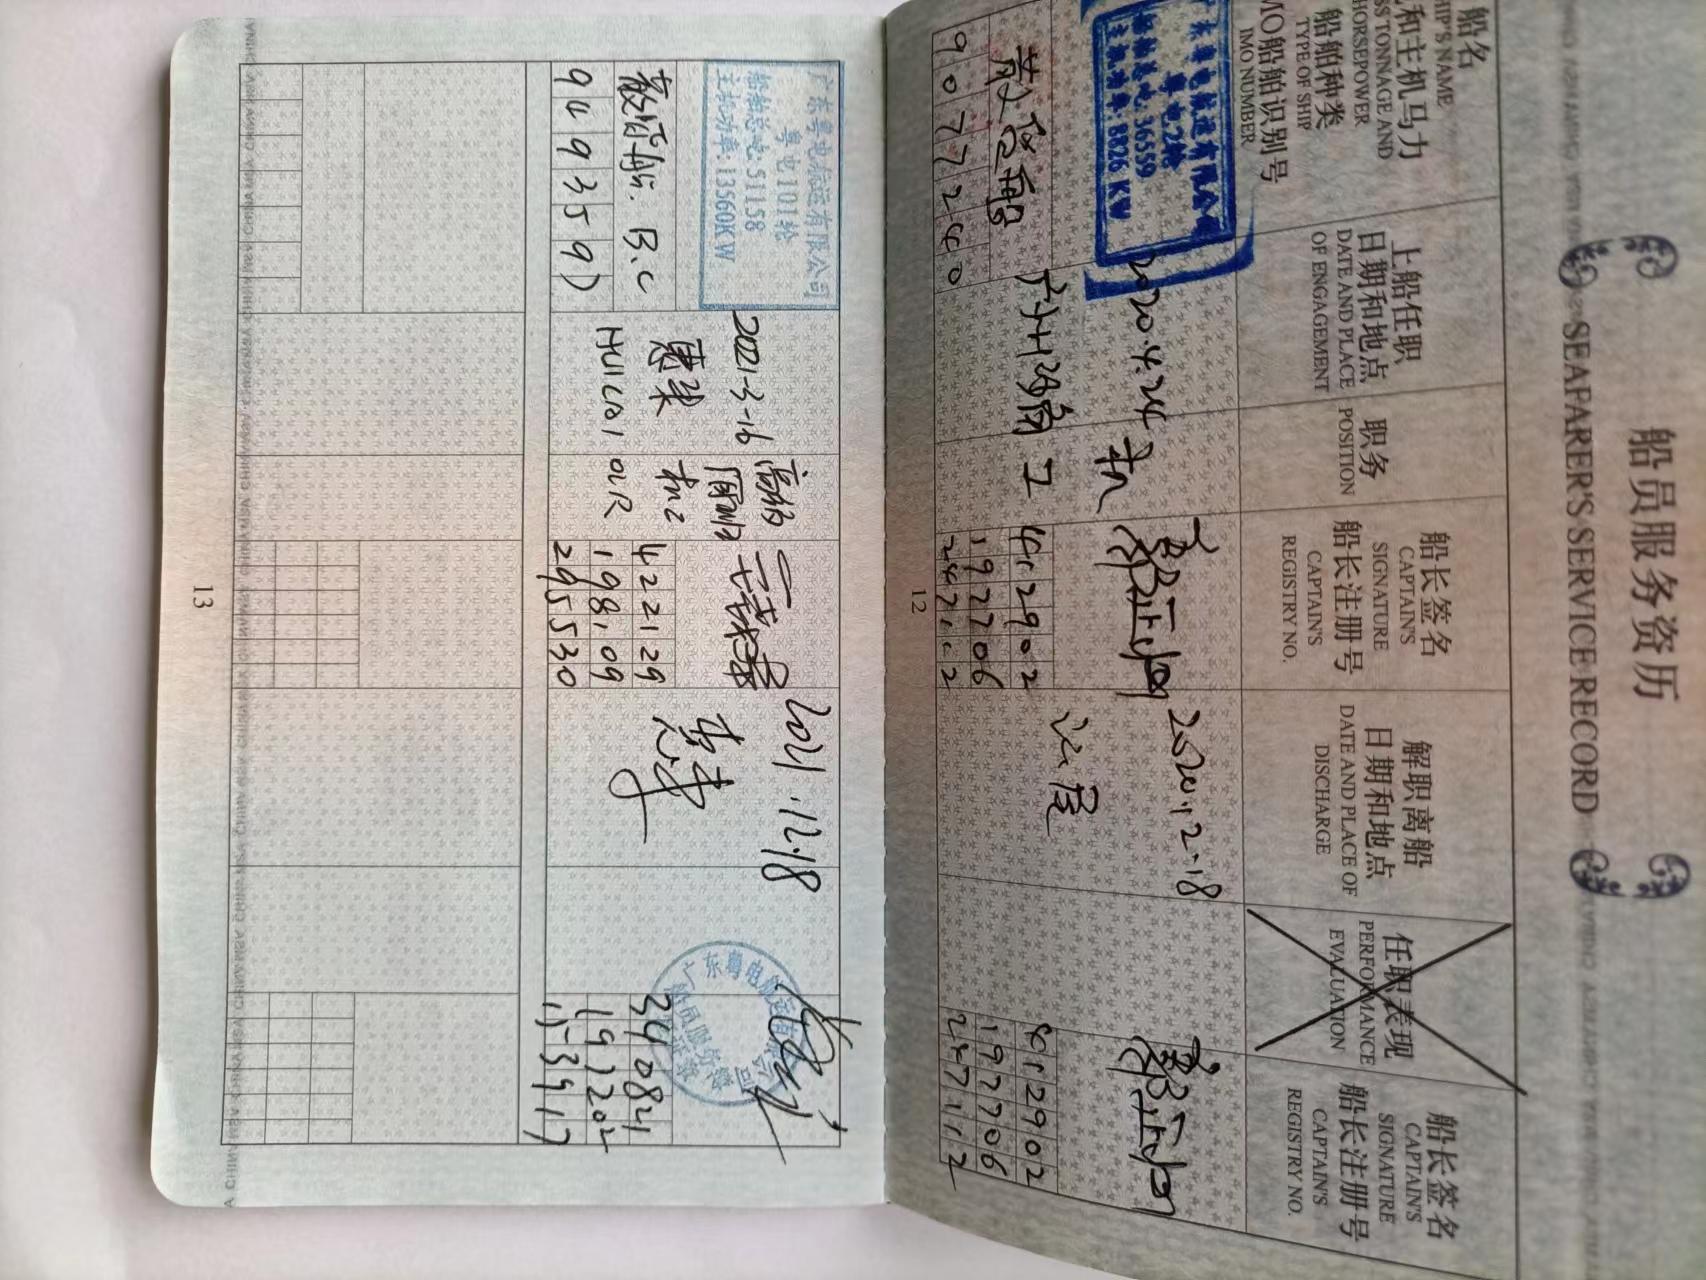 船员服务资历
SEAFARER'S SERVICE RECORD
船名
SHIP'S NAME
和主机马力
SS TONNAGE AND
HORSEPOWER
船舶种类
TYPE OF SHIP
MO船舶识别号
IMO NUMBER
上船任职
日期和地点
DATE AND PLACE
OF ENGAGEMENT
职务
POSITION
船长签名
CAPTAIN'S
SIGNATURE
船长注册号
CAPTAIN'S
REGISTRY NO.
解职离船
日期和地点
DATE AND PLACE OF
DISCHARGE
任职表现
PERFORMANCE
EVALUATION
船长签名
CAPTAIN'S
SIGNATURE
船长注册号
CAPTAIN'S
REGISTRY NO.
广东粤电航运有限公司
粤电2轮
船舶总吨:36559
主机功率:8826 KW
散货船
9077240
2020.4.24
机
工
412902
197706
247112
2020.12.18
412902
197706
247112
12
广东粤电航运有限公司
粤电101轮
船舶总吨:51158
主机功率:13560KW
散货船 B.C
9493597
2021-3-16
惠来
HUILAI
高级
值班
机工
OLR
422129
198109
295530
2021.12.18
黄骅
广东粤电航运有限公司
340821
197202
153917
13